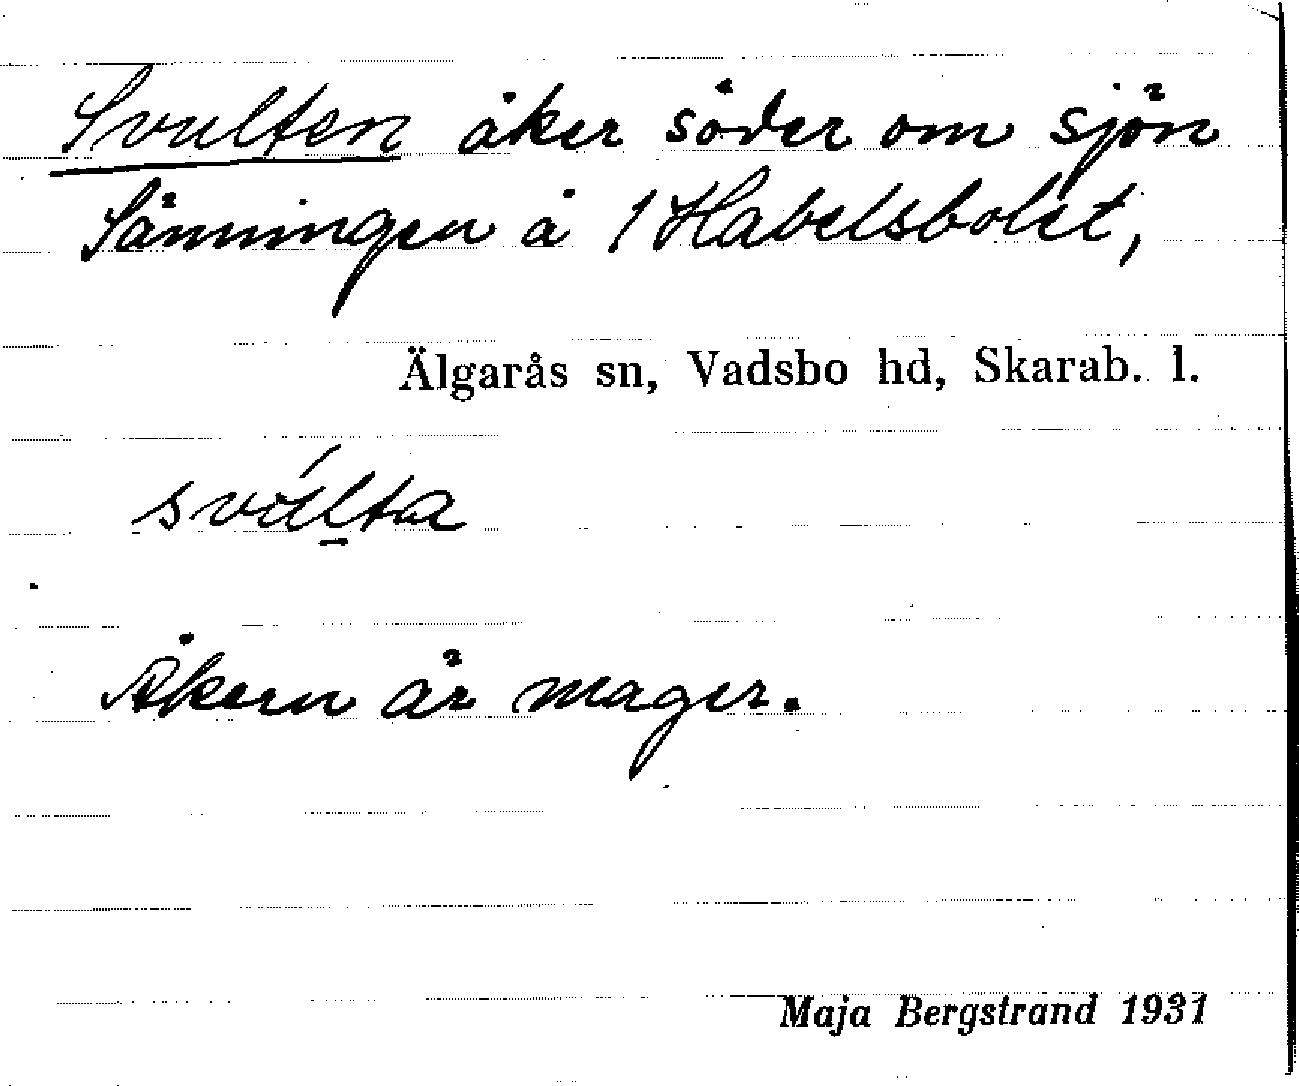 Svulten åker söder om sjön
Sänningen å 1 Habelsbolet,
Älgarås sn, Vadsbo hd, Skarab. l.
svúlta
Åkern är mager.
Maja Bergstrand 1931